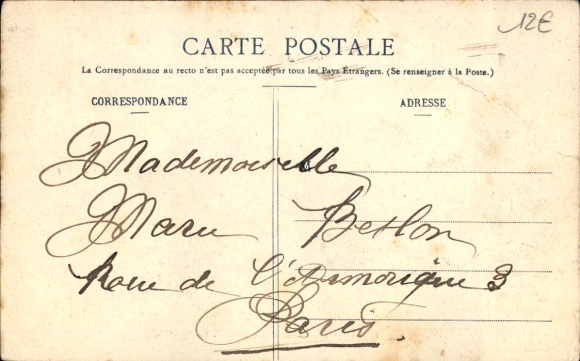 12€
CARTE POSTALE
La Correspondance au recto n'est pas acceptée par tous les Pays Étrangers. (Se renseigner à la Poste.)
CORRESPONDANCE
ADRESSE
Mademoiselle
Beslon
Rue de l'Armorique 3
Paris